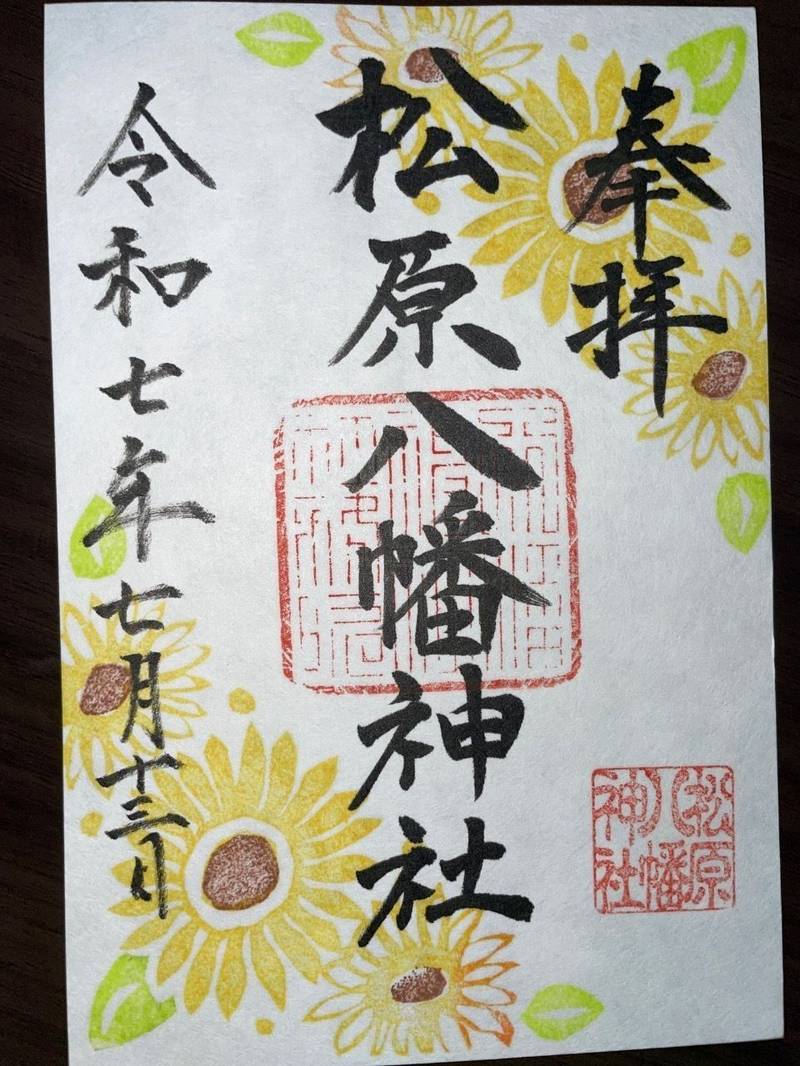 奉拝
松原八幡神社
令和七年七月十三日
松原
八幡
神社